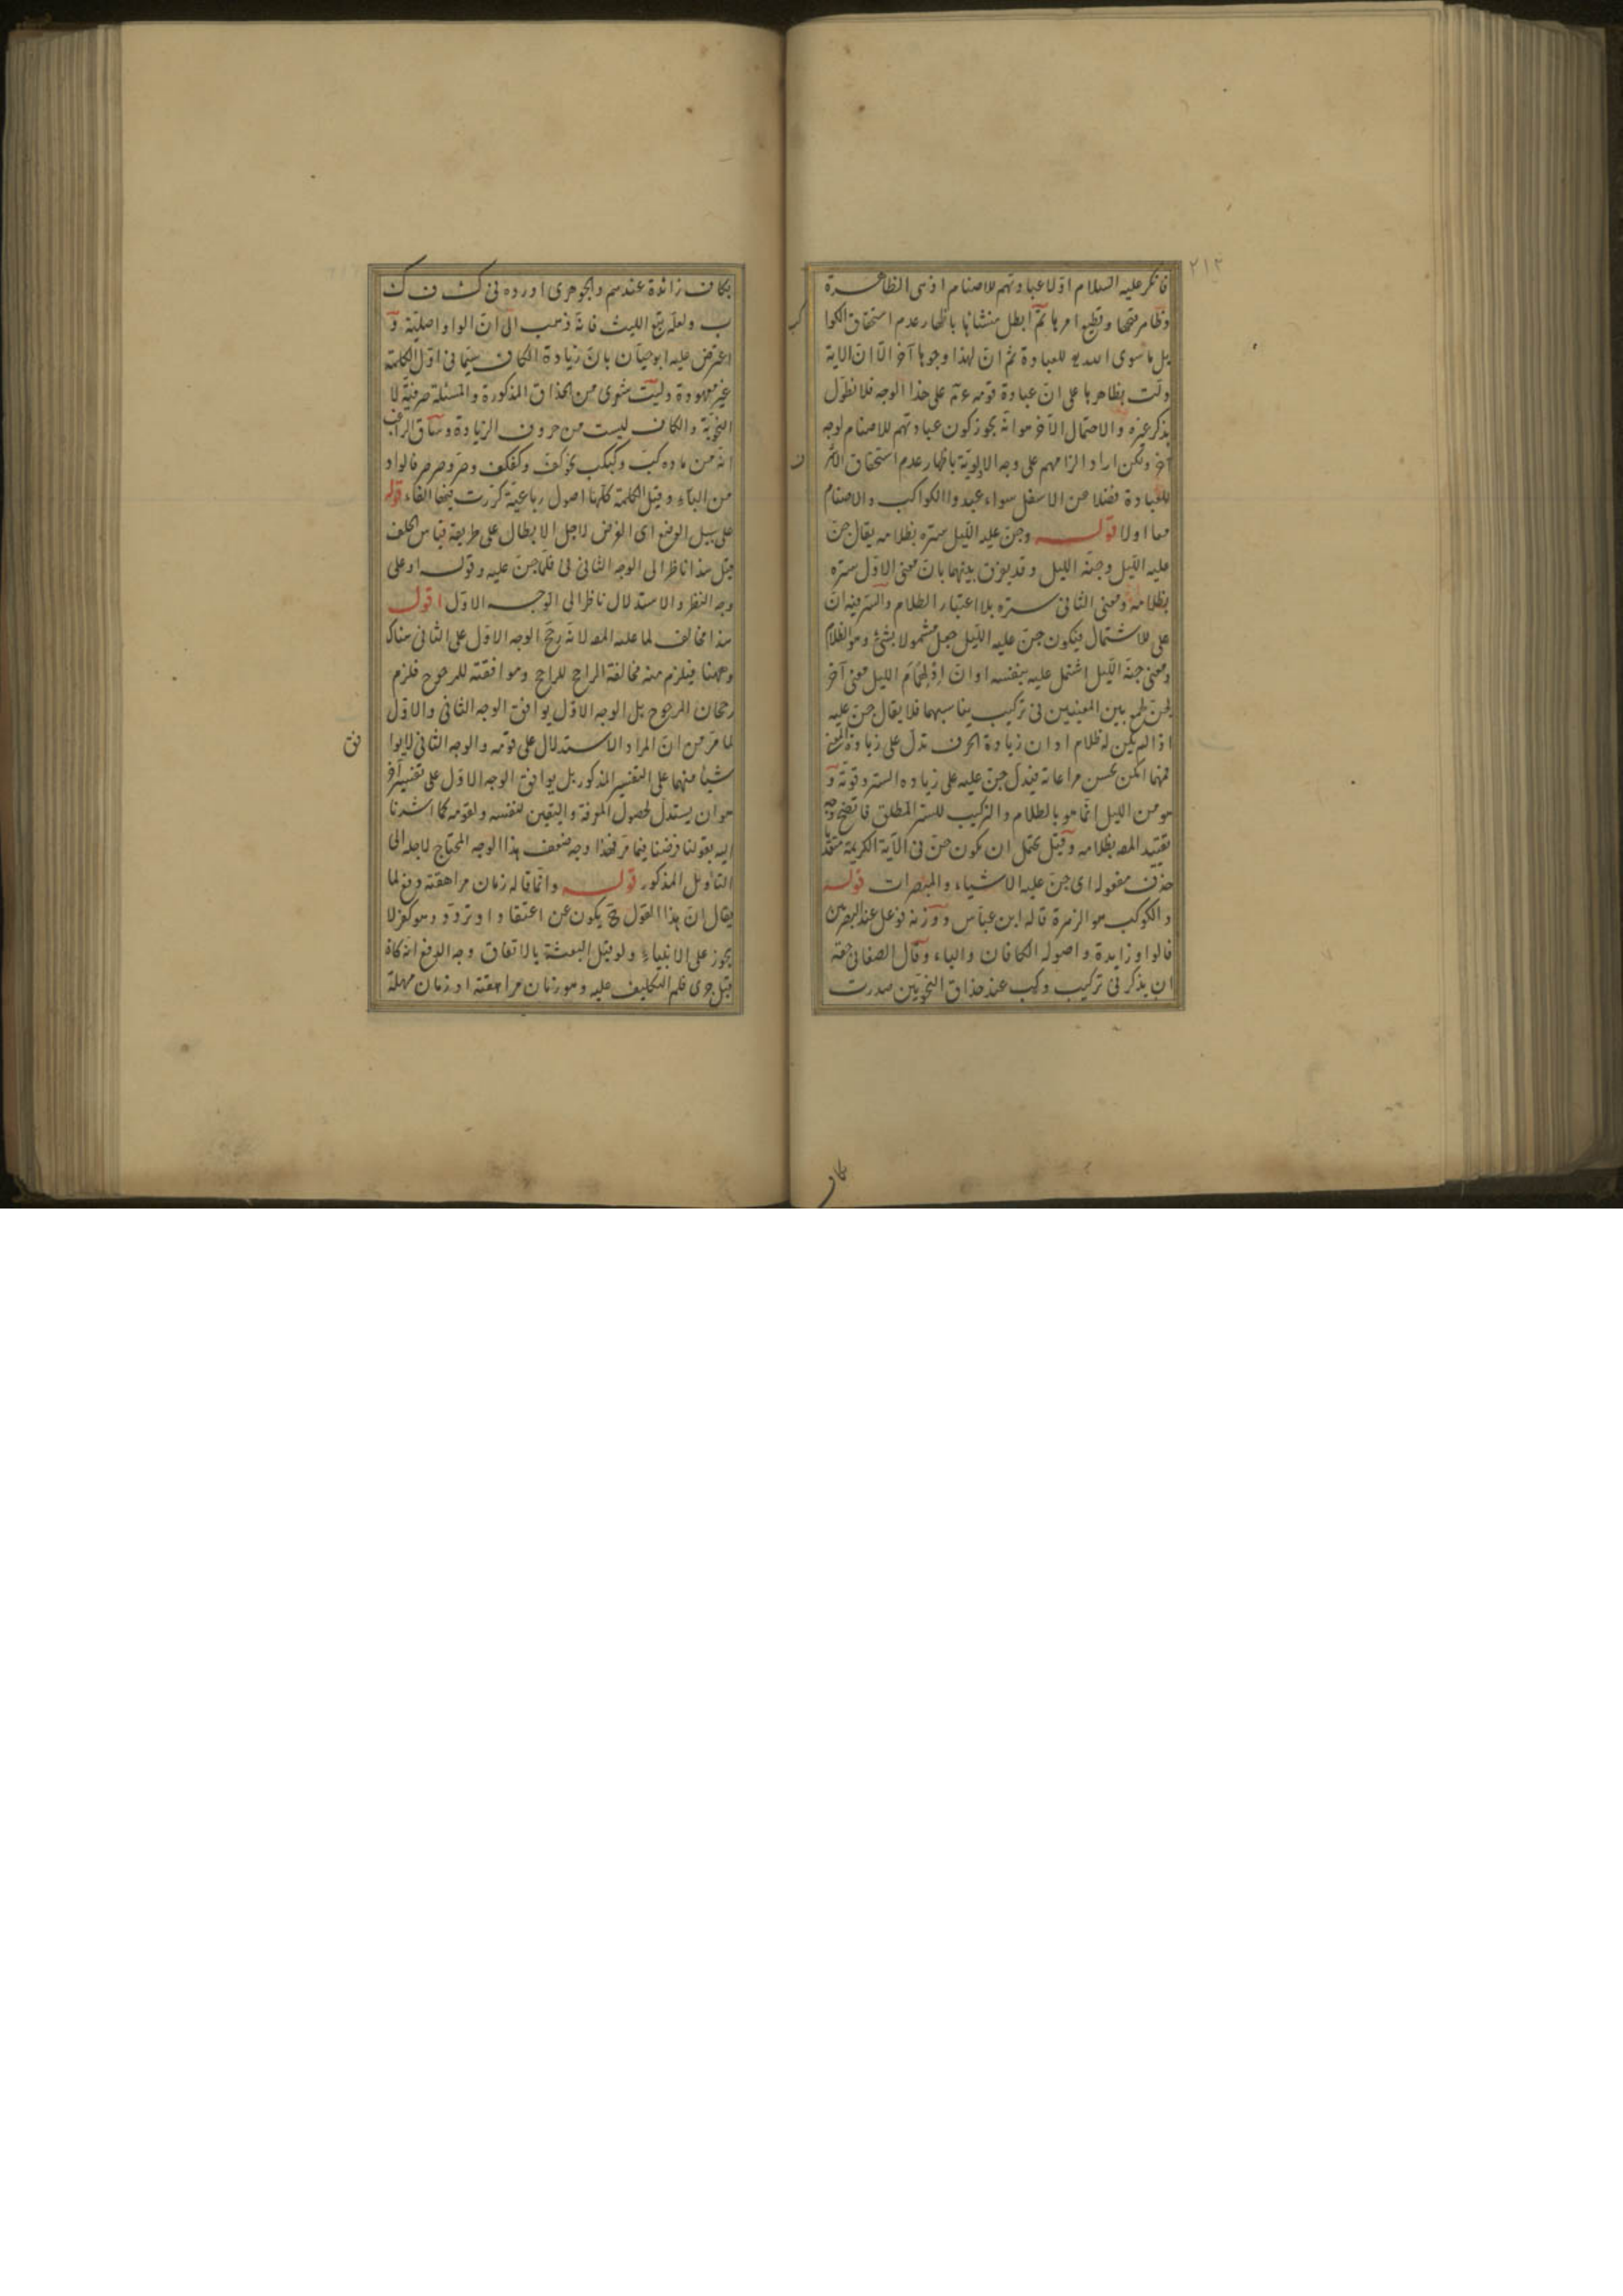 ٢١٣
فانكر عليه السلام اوّلا عبادتهم للاصنام اذ هى الظاهرة
وظاهر قبحها وقطع امرها ثمّ ابطل منشائها باظهار عدم استحقاق الكوا
كب
بل ما سوى الله للعبادة ثم انّ لهذا وجوها آخر الّا انّ الاية
دلّت بظاهرها على انّ عبادة قومه على هذا الوجه فلا نطوّل
بذكر غيره والاحتمال الآخر هو انه يجوز كون عبادتهم للاصنام لوجه
آخر ولكن اراد الزامهم على وجه الالويّة باظهار عدم استحقاق الاشر
ف
للعبادة فضلا عن الاسفل سواء عبدوا الكواكب والاصنام
معا اولا قوله وجنّ عليه اللّيل ستره بظلامه يقال جنّ
عليه اللّيل وجنّه الليل وقد يفرّق بينهما بانّ معنى الاوّل ستره
بظلامه ومعنى الثانى ستره بلا اعتبار الظلام والسرّ فيه انّ
على للاشتمال فيكون جنّ عليه اللّيل جعل مشمولا بشئ وهو الظلام
ومعنى جنّه اللّيل اشتمل عليه بنفسه او انّ الليل معنى آخر
بين المعنيين فى تركيب يناسبهما فلا يقال جنّ عليه
اذا لم يكن له ظلام او ان زيادة الحرف تدل على زيادة المعنى
فمهما امكن يحسن مراعاته فيدلّ جنّ عليه على زيادة الستر وقوّته و
هو من الليل انّما هو بالظلام والتركيب للستر المطلق فاتضح وجه
تقييد المص بظلامه وقيل يحتمل ان يكون جنّ فى الآية الكريمة متعديا
حذف مفعوله اى جنّ عليه الاشياء والمبصرات قوله
والكوكب هو الزهرة قاله ابن عباس ووزنه فوعل عند البصريين
فالواو زايدة واصوله الكافان والباء وقال الصغانى حقه
ان يذكر فى تركيب وكب عند حذاق النحويّين صدرت
كاف
بكاف زائدة عندهم والجوهرى اورده فى ك و ك
ب ولعلّه تبع الليث فانه ذهب الى انّ الواو اصليّة و
اعترض عليه ابو حيّان بانّ زيادة الكاف سيّما فى اوّل الكلمة
غير معهودة وليت شعرى من الحذاق المذكورة والمسئلة صرفيّة لا
النحويّة والكاف ليست من حروف الزيادة وساق الراغب
انه من ماده كبّ وكبكب نحو كفّ وكفكف وصرّ وصرصر فالواو
من الباء وقيل الكلمة كلّها اصول رباعيّة كرّرت فيها الفاء قوله
على سبيل الوضع اى الفرض لاجل الابطال على طريقة قياس الخلف
قيل هذا ناظر الى الوجه الثانى فى فلمّا جنّ عليه وقوله او على
وجه النظر والاستدلال ناظر الى الوجه الاوّل اقول
هذا مخالف لما عليه المص لانه رجّح الوجه الاوّل على الثانى هناك
وههنا فيلزم منه مخالفة الراجح للراجح وموافقته للمرجوح فلزم
رجحان المرجوح بل الوجه الاوّل يوافق الوجه الثانى والاوّل
لما مرّ من انّ المراد الاستدلال على قومه والوجه الثانى لا يوا
فق
شيئا منهما على التفسير المذكور بل يوافق الوجه الاوّل على تفسير آخر
هو ان يستدلّ لحصول المعرفة واليقين لنفسه ولقومه كما اشرنا
اليه بقولنا فرضنا فيما مرّ فخذا وجه ضعف هذا الوجه المحتاج لاجله الى
التأويل المذكور قوله وانّما قاله زمان مراهقته دفع لما
يقال انّ هذا القول يكون عن اعتقاد او تردّد وهو كفر لا
يجوز على الانبياء ولو قبل البعثة بالاتفاق وجه الدفع انه كان
قبل جرى قلم التكليف عليه وهو زمان مراهقته او زمان مهلة